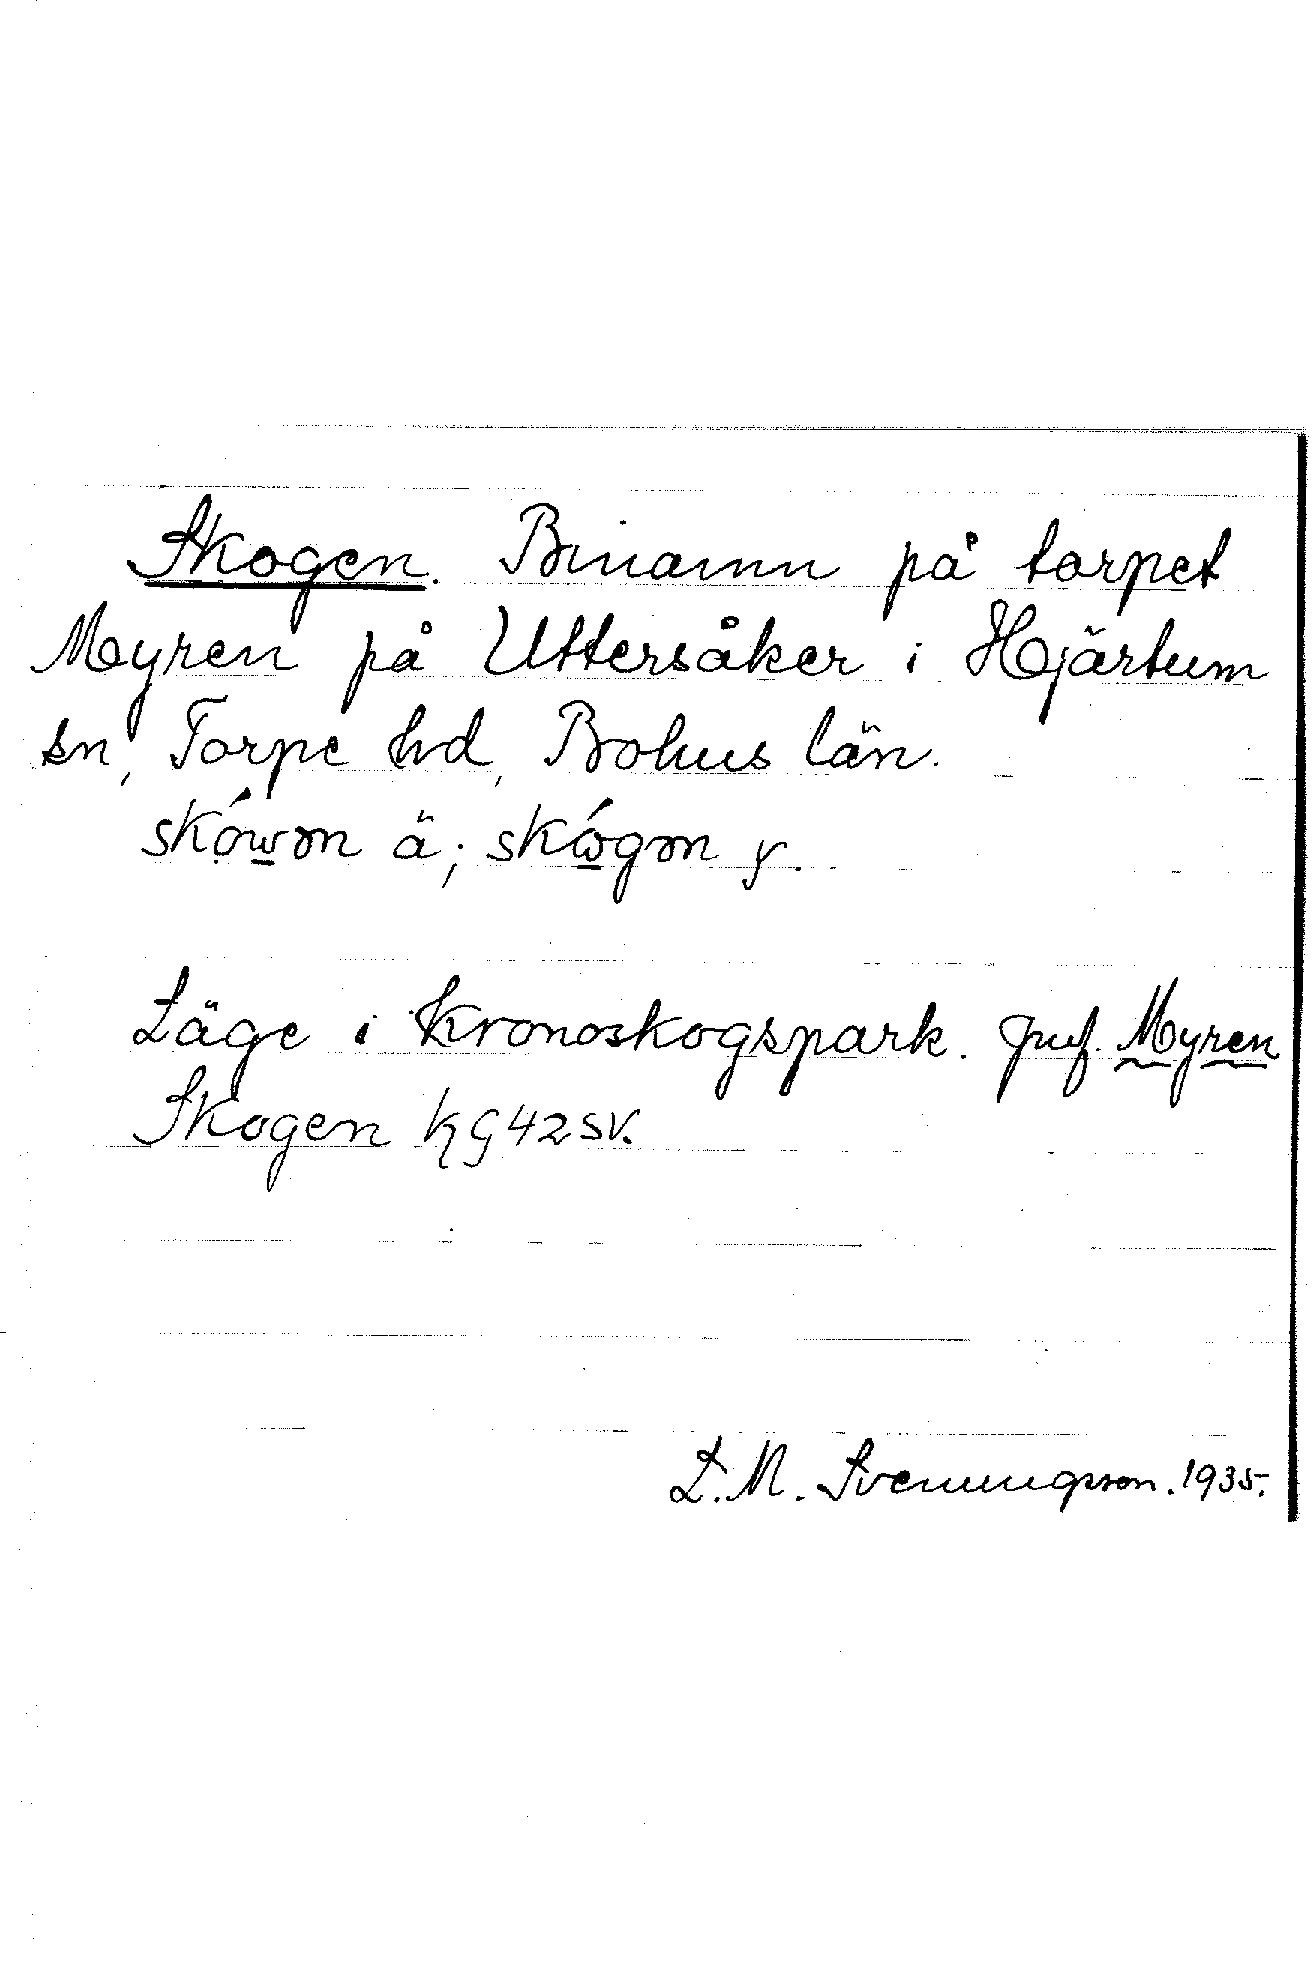 Skogen. Binamn på torpet
Myren på Uttersåker i Hjärtum
sn, Torpe hd, Bohus län.
ä; y.
Läge i kronoskogspark. Jmf. Myren
Skogen KG 42 SV.
L. M. Svenungsson. 1935.